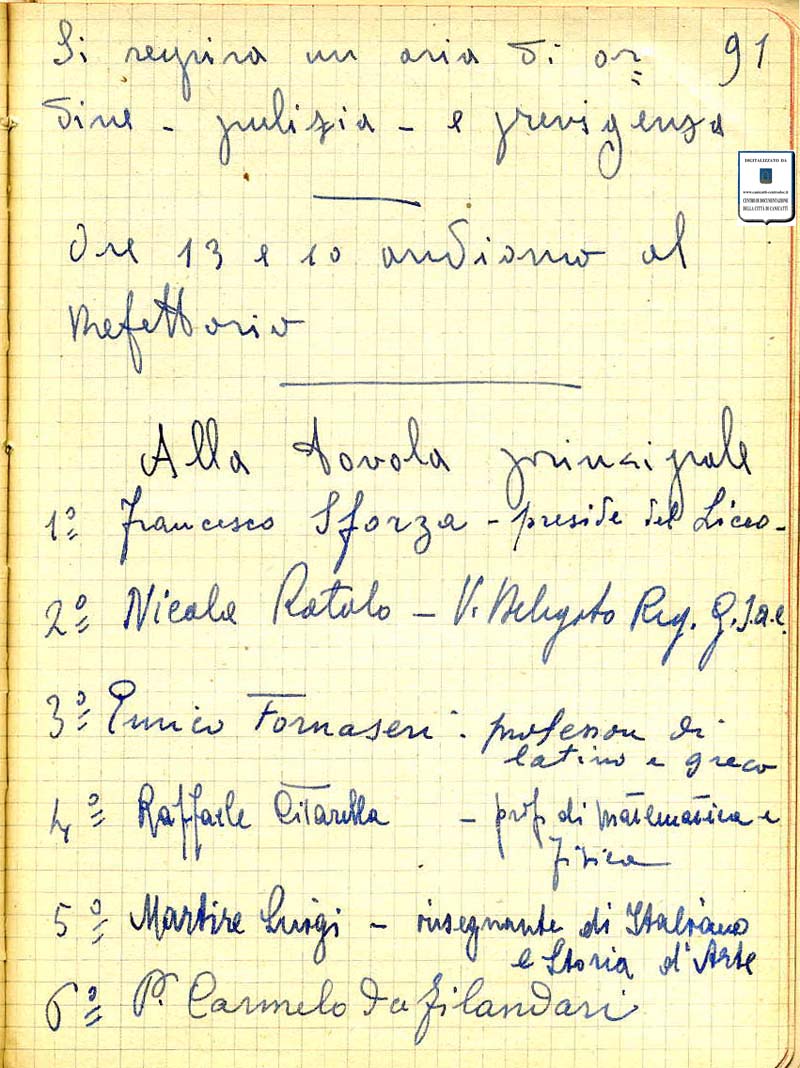 Si respira un aria di or 91
dine - pulizia - e previgenza
DIGITALIZZATO DA
www.canicatti-centrodoc.it
CENTRO DI DOCUMENTAZIONE
DELLA CITTÀ DI CANICATTÌ
Ore 13 e 10 andiamo al
Refettorio
Alla tavola principale
1º Francesco Sforza - preside del Liceo -
2º Nicola Ratalo - V. Delegato Reg. G.I.a.c.
3º Enrico Fornaseri - professore di
latino e greco
4º Raffaele Citarella - prof. di matematica e
fisica
5º Martire Luigi - insegnante di Italiano
e Storia d'Arte
6º P. Carmelo da Filandari